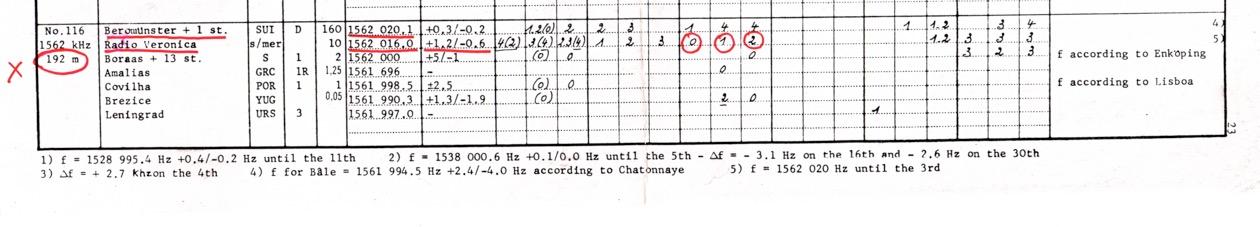 No.116 Beromünster + 1 st. SUI D 160 1562 020.1 +0.3/-0.2 1.2(0) 2 2 3 1 4 4 1 1.2 3 4 4)
1562 kHz Radio Veronica s/mer 10 1562 016.0 +1.2/-0.6 4(2) 3(4) 2.3(4) 1 2 3 3 0 1 2 1.2 3 3 3 5)
X 192 m Boraas + 13 st. S 1 2 1562 000 +5/-1 (0) 0 0 3 2 3 f according to Enköping
Amalias GRC 1R 1,25 1561 696 - 0
Covilha POR 1 1 1561 998.5 ±2.5 (0) 0 f according to Lisboa
Brezice YUG 0,05 1561 990.3 +1.3/-1.9 (0) 2 0
Leningrad URS 3 1561 997.0 - 1
23
1) f = 1528 995.4 Hz +0.4/-0.2 Hz until the 11th 2) f = 1538 000.6 Hz +0.1/0.0 Hz until the 5th - Δf = - 3.1 Hz on the 16th and - 2.6 Hz on the 30th
3) Δf = + 2.7 Khzon the 4th 4) f for Bâle = 1561 994.5 Hz +2.4/-4.0 Hz according to Chatonnaye 5) f = 1562 020 Hz until the 3rd